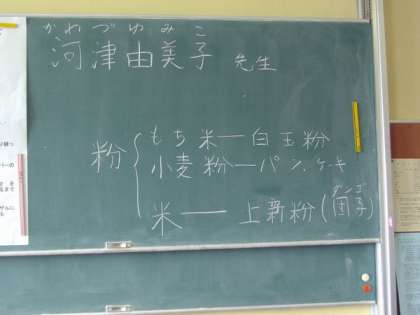 かわづゆみこ
河津由美子 先生
粉
もち米─白玉粉
小麦粉─パン、ケーキ
米─上新粉(団子)
ダンゴ